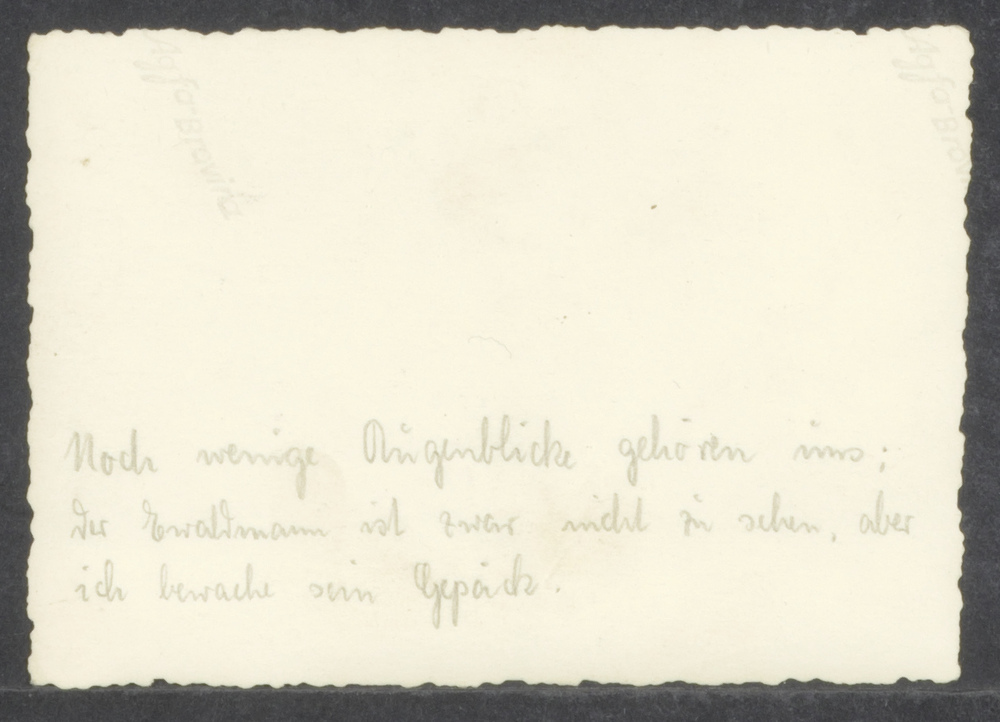 Agfa-Brovira
Agfa-Brovira
Noch wenige Augenblicke gehören uns;
der Ewaldmann ist zwar nicht zu sehen, aber
ich bewache sein Gepäck.